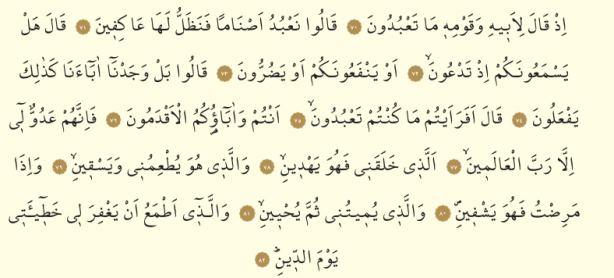 اِذْ قَالَ لِاَب۪يهِ وَقَوْمِه۪ مَا تَعْبُدُونَ ﴿٧٠﴾ قَالُوا نَعْبُدُ اَصْنَامًا فَنَظَلُّ لَهَا عَاكِف۪ينَ ﴿٧١﴾ قَالَ هَلْ
يَسْمَعُونَكُمْ اِذْ تَدْعُونَۙ ﴿٧٢﴾ اَوْ يَنْفَعُونَكُمْ اَوْ يَضُرُّونَ ﴿٧٣﴾ قَالُوا بَلْ وَجَدْنَٓا اٰبَٓاءَنَا كَذٰلِكَ
يَفْعَلُونَ ﴿٧٤﴾ قَالَ اَفَرَاَيْتُمْ مَا كُنْتُمْ تَعْبُدُونَۙ ﴿٧٥﴾ اَنْتُمْ وَاٰبَٓاؤُ۬كُمُ الْاَقْدَمُونَ ﴿٧٦﴾ فَاِنَّهُمْ عَدُوٌّ ل۪ٓي
اِلَّا رَبَّ الْعَالَم۪ينَۙ ﴿٧٧﴾ اَلَّذ۪ي خَلَقَن۪ي فَهُوَ يَهْد۪ينِۙ ﴿٧٨﴾ وَالَّذ۪ي هُوَ يُطْعِمُن۪ي وَيَسْق۪ينِۙ ﴿٧٩﴾ وَاِذَا
مَرِضْتُ فَهُوَ يَشْف۪ينِۖ ﴿٨٠﴾ وَالَّذ۪ي يُم۪يتُن۪ي ثُمَّ يُحْي۪ينِۙ ﴿٨١﴾ وَالَّذ۪ٓي اَطْمَعُ اَنْ يَغْفِرَ ل۪ي خَط۪ٓيـَٔت۪ي
يَوْمَ الدّ۪ينِۜ ﴿٨٢﴾